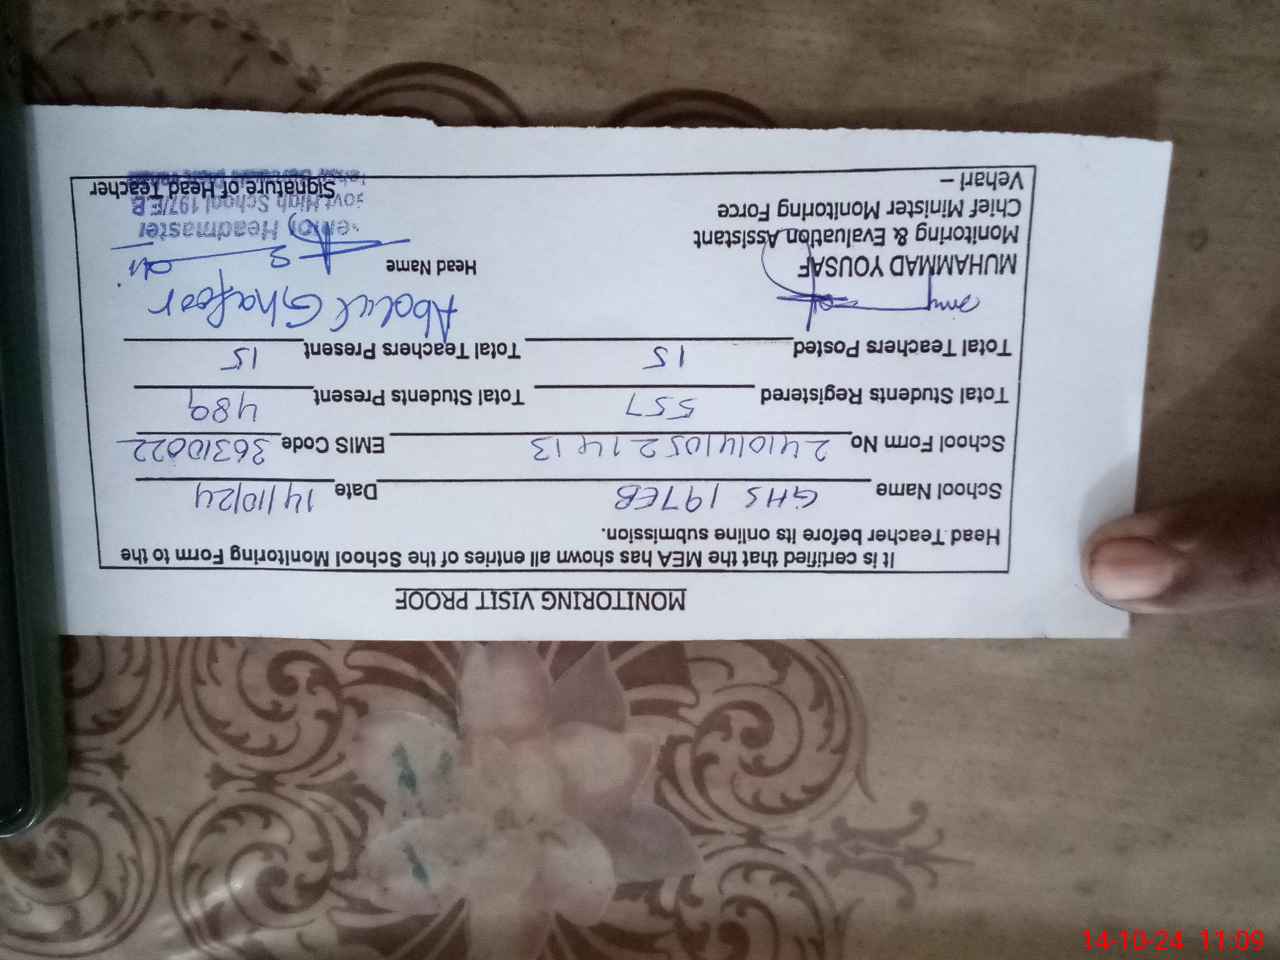 MONITORING VISIT PROOF
It is certified that the MEA has shown all entries of the School Monitoring Form to the
Head Teacher before its online submission.
School Name GHS 197EB Date 14/10/24
School Form No. 241014105214 13 EMIS Code 36310022
Total Students Registered 557 Total Students Present 489
Total Teachers Posted 15 Total Teachers Present 15
Abdul Ghafoor
MUHAMMAD YOUSAF Head Name
Monitoring & Evaluation Assistant
Senior Headmaster
Chief Minister Monitoring Force
Govt High School 197/E.B
Vehari – Signature of Head Teacher
14-10-24 11:09